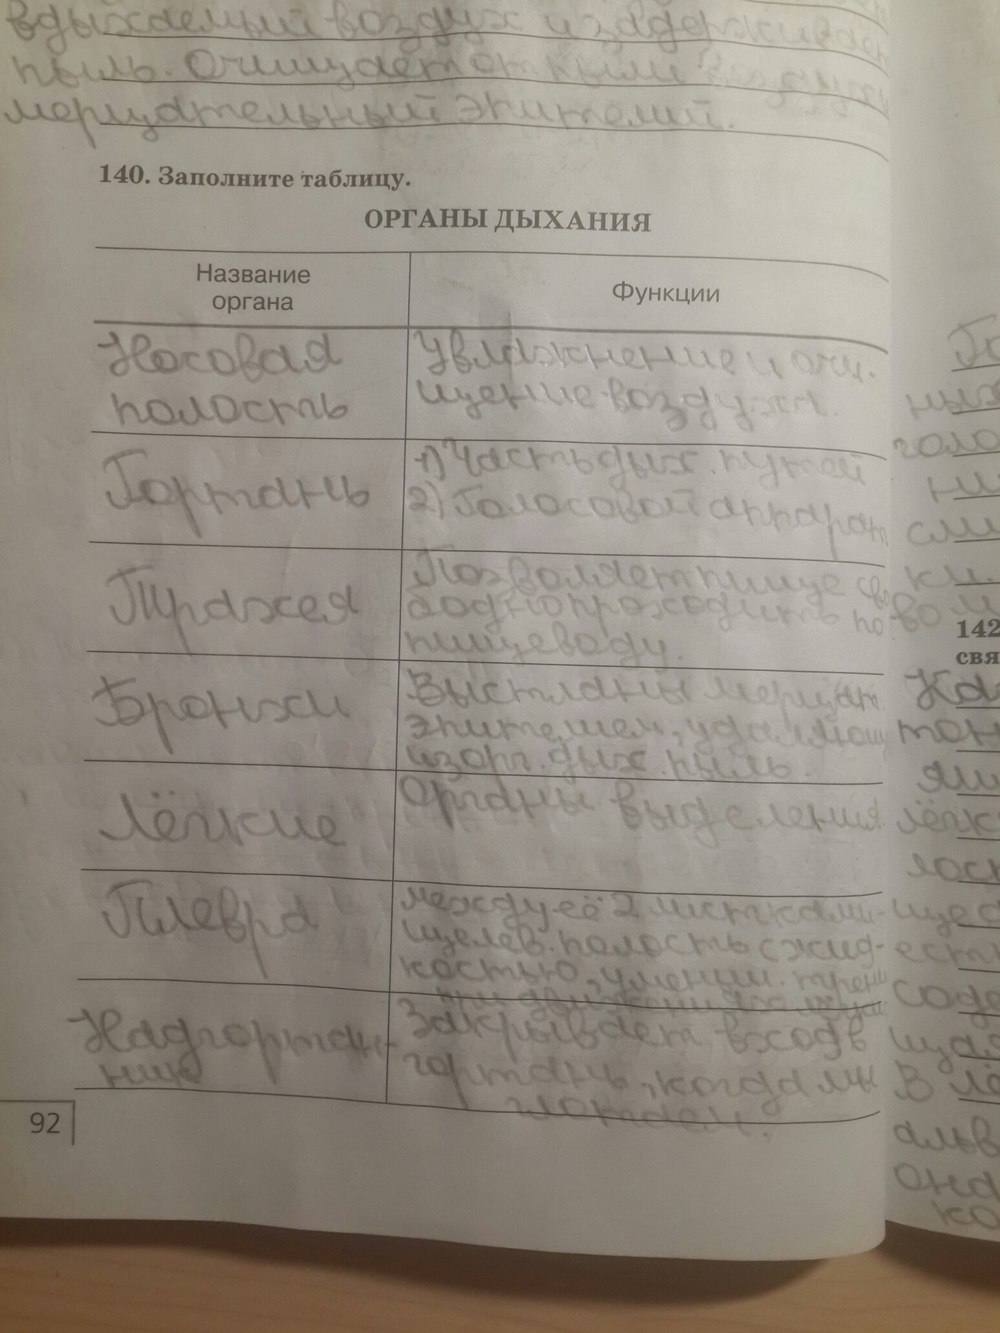 вдыхаемый воздух и задерживает
пыль. Очищает от пыли воздух
мерцательный эпителий.
140. Заполните таблицу.
ОРГАНЫ ДЫХАНИЯ
Название
органа
Функции
Носовая
полость
Увлажнение и очи-
щение воздуха.
Гортань
1) Часть дых. путей
2) Голосовой аппарат
Трахея
Позволяет пище сво
бодно проходить по
пищеводу.
Бронхи
Выстланы мерцат
эпителием, удаляющ
из орг. дых. пыль.
Лёгкие
Органы выделения
Плевра
между её 2 листками-
щелев. полость с жид-
костью, уменьш. трени
при движении
Надгортан-
ник
Закрывает вход в
гортань, когда мы
глотаем.
92
142
свя